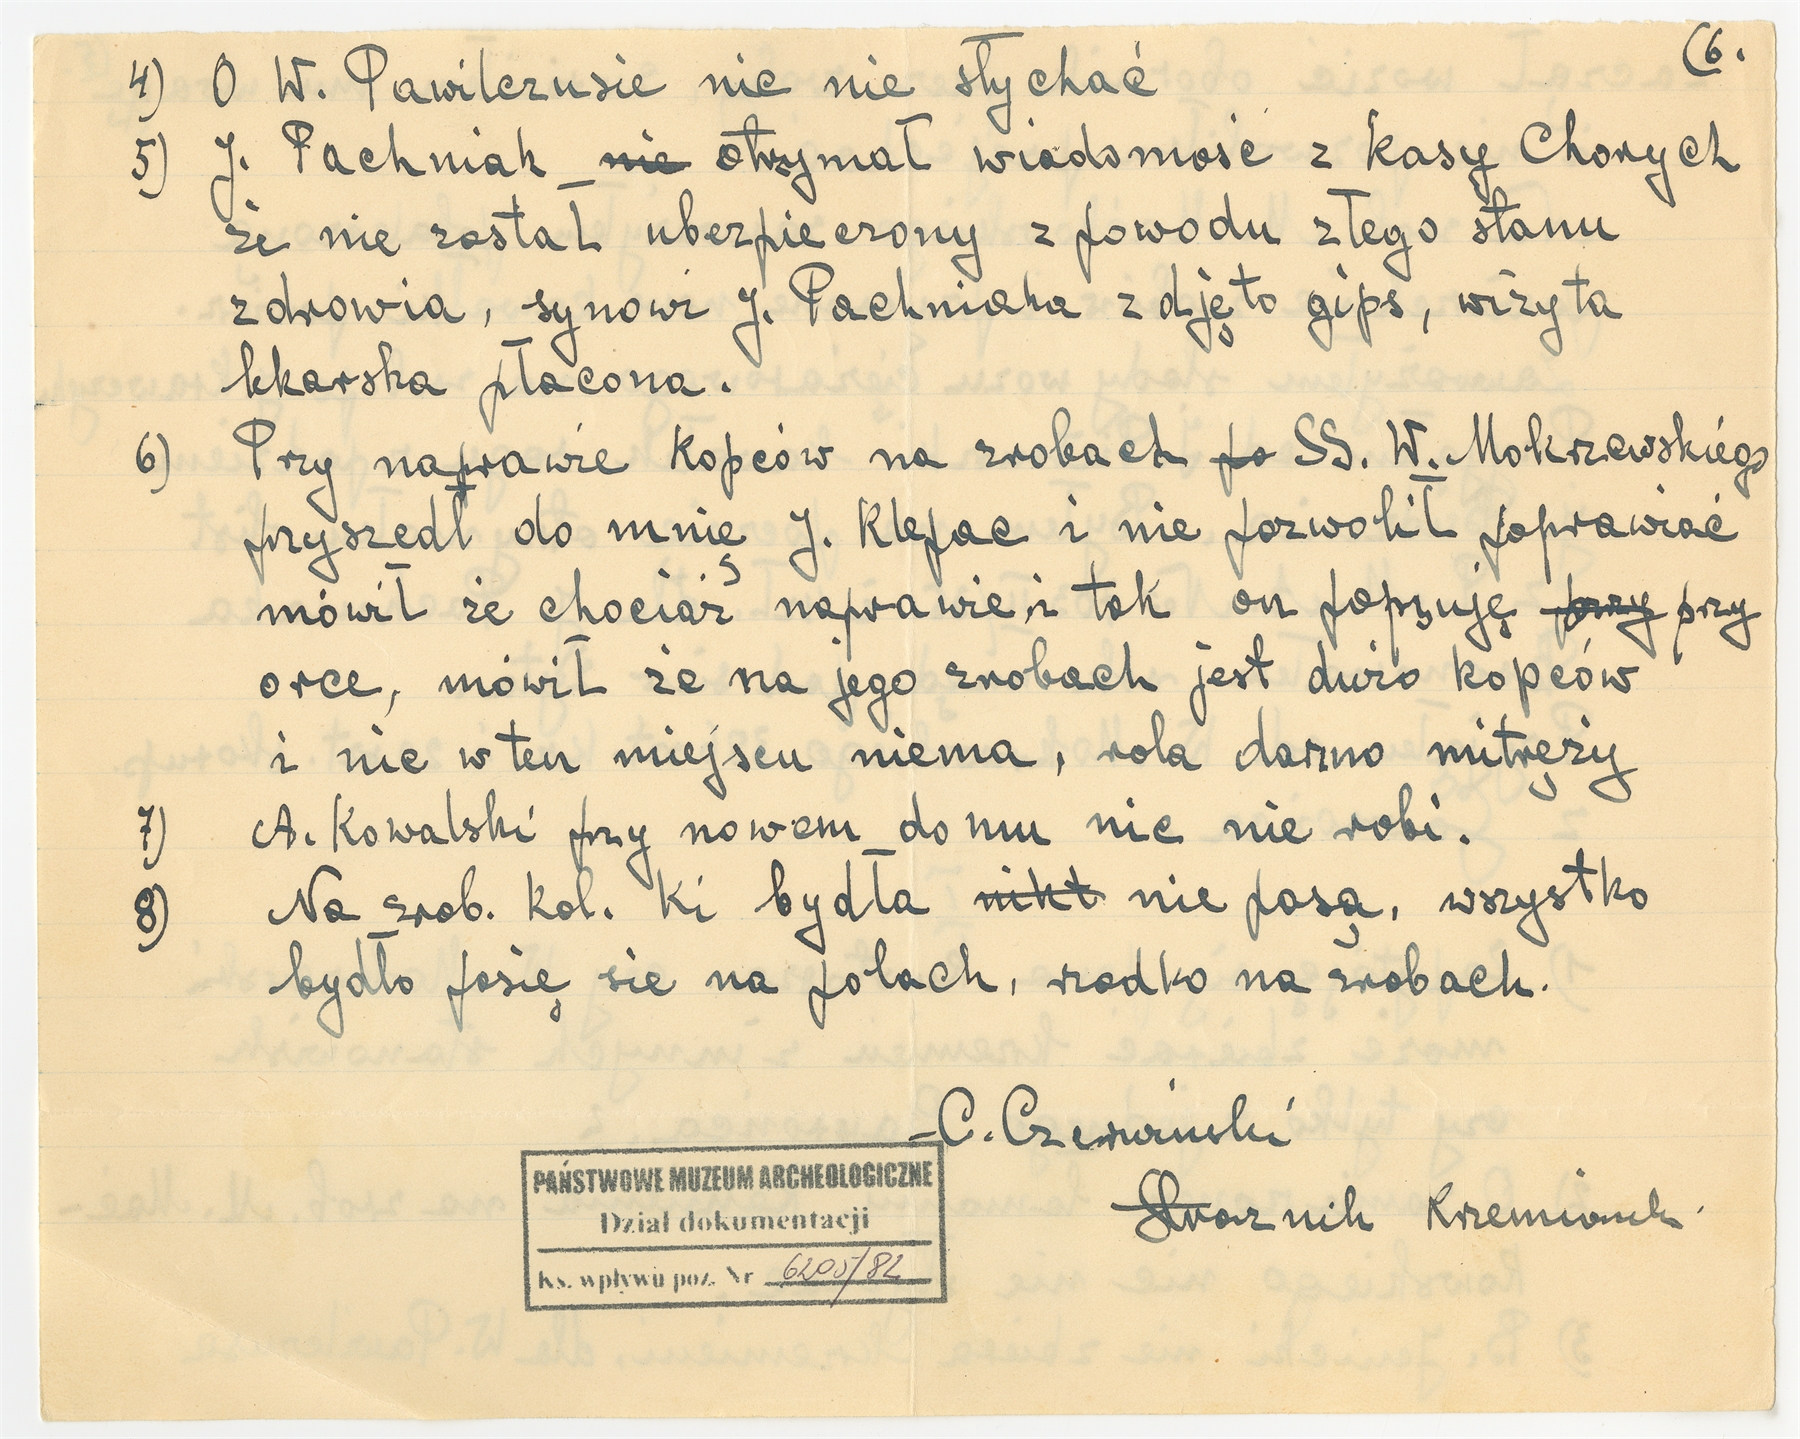 (6.
4) O W. Pawilczusie nic nie słychać
5) J. Pachniak ~~nie~~ otrzymał wiadomość z Kasy Chorych
że nie został ubezpieczony z powodu złego stanu
zdrowia, synowi J. Pachniaka zdjęto gips, wizyta
lekarska płacona.
6) Przy naprawie Kopców na zrobach ~~po~~ SS. W. Mokrzewskiégo
przyszedł do mnię J. Klepac i nie pozwolił poprawiać
mówił że chociaż naprawie, i tak on popsuję ~~przy~~ przy
orce, mówił że na jego zrobach jest dużo kopców
i nic w ten miejscu niema, rola darmo mitręży
7) A. Kowalski przy nowem domu nic nie robi.
8) Na zrob. Kol. Ki bydła ~~nikt~~ nie pasą, wszystko
bydło pasię sie na polach, rzadko na zrobach.
C. Czerwiński
Stróżnik Krzemionek.
PAŃSTWOWE MUZEUM ARCHEOLOGICZNE
Dział dokumentacji
Ks. wpływu poz. Nr 6205/82